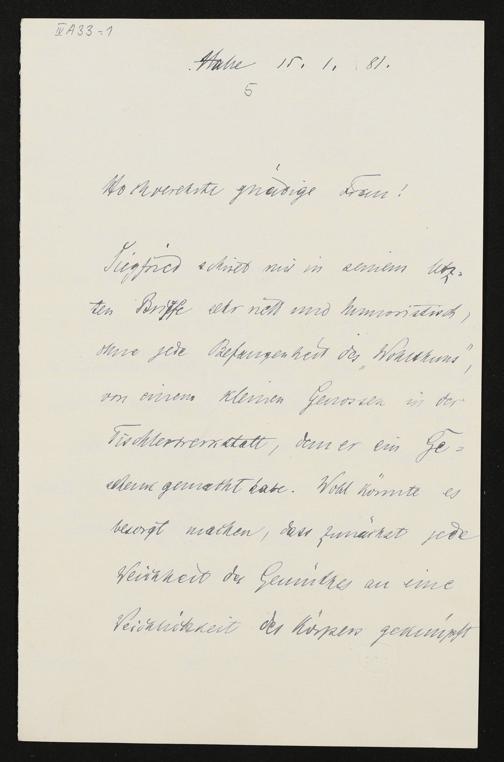 IV A 33-1
Halle 15. 1. 81.
5
Hochverehrte gnädige Frau!
Siegfried schrieb mir in seinem letz-
ten Briefe sehr nett und humoristisch,
ohne jede Befangenheit des „Wohlthuns",
von einem kleinen Genossen in der
Tischlerwerkstatt, dem er ein Ge-
schenk gemacht habe. Wohl könnte es
besorgt machen, dass zunächst jede
Weichheit des Gemüthes an eine
Weichlichkeit des Körpers geknüpft